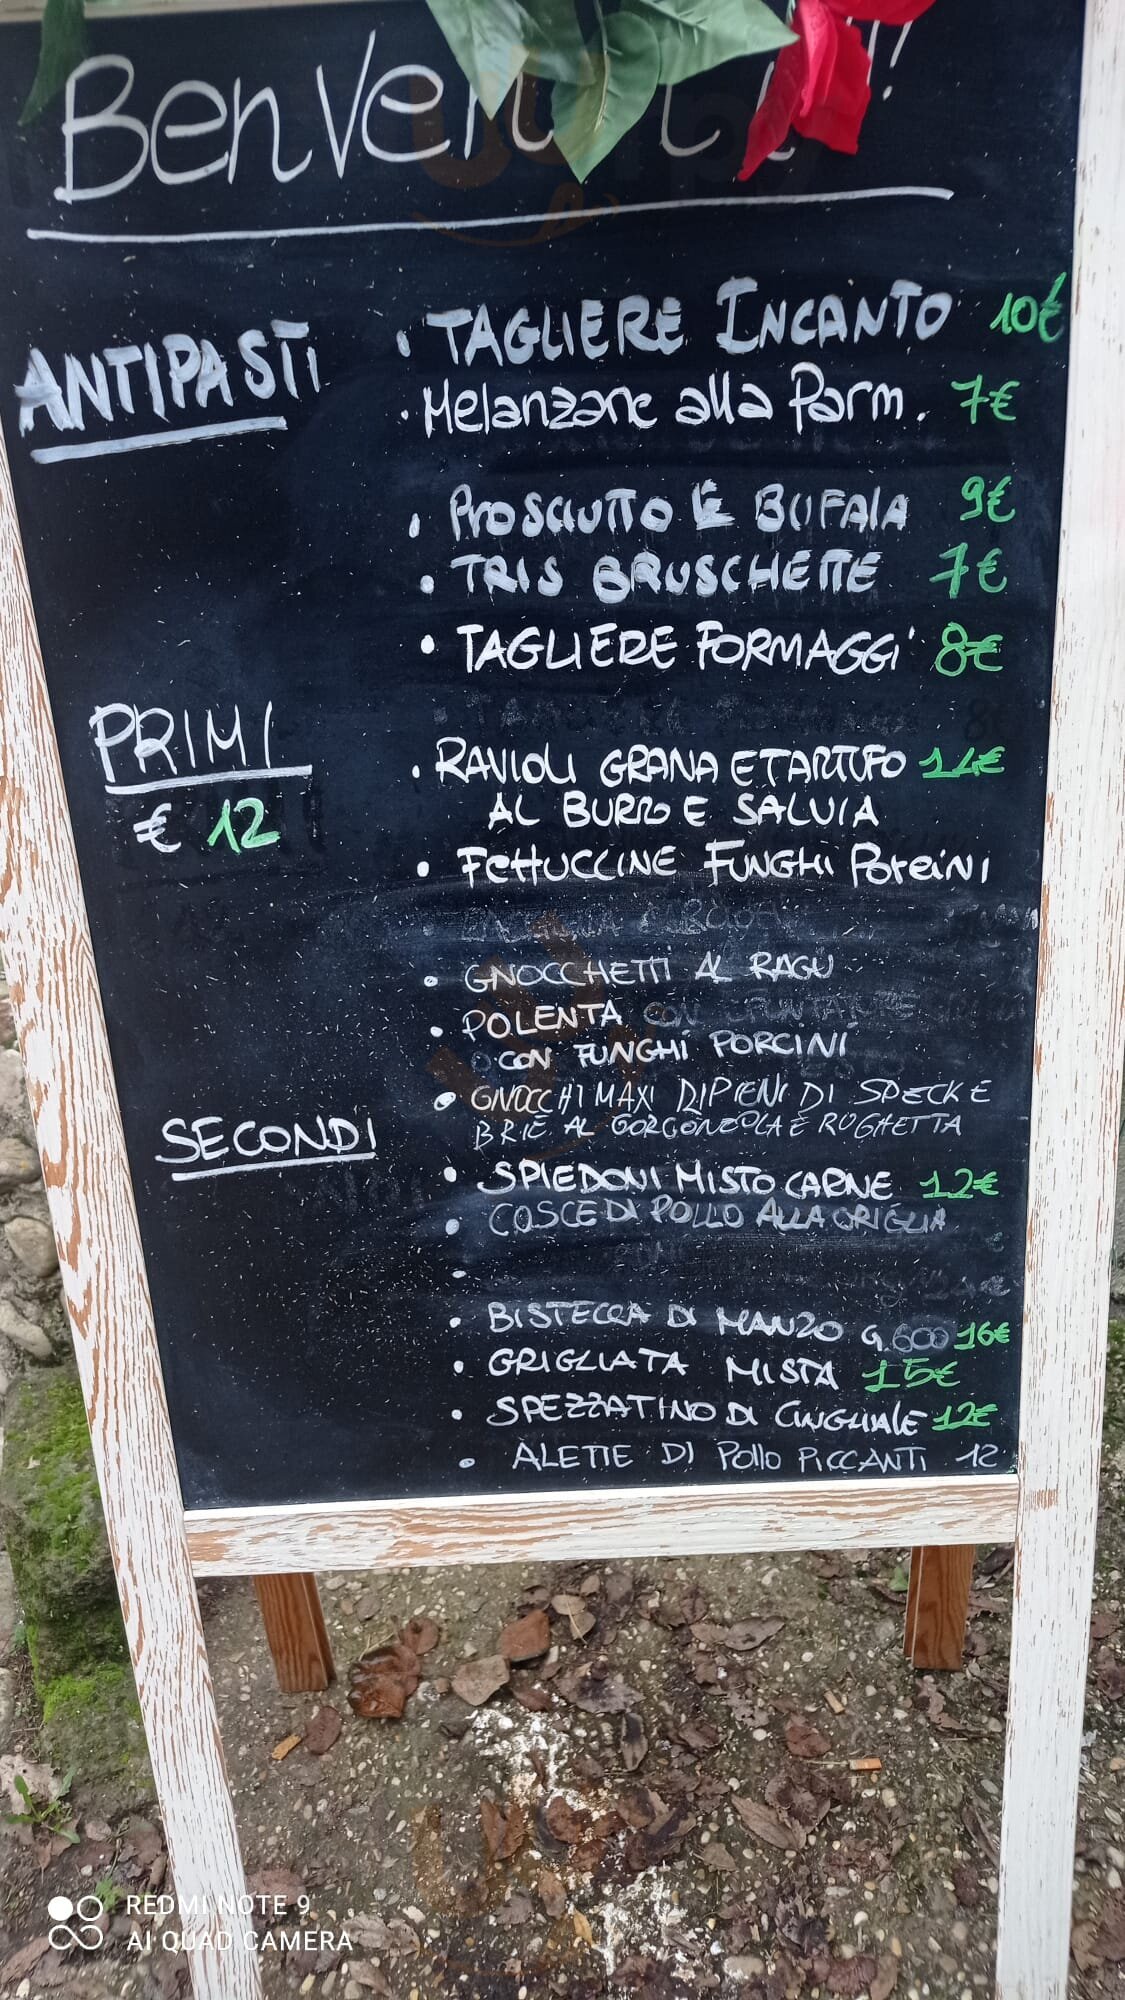 ANTIPASTI
• TAGLIERE INCANTO 10€
• Melanzane alla Parm. 7€
• PROSCIUTTO E BUFALA 9€
• TRIS BRUSCHETTE 7€
• TAGLIERE FORMAGGI 8€
PRIMI
€ 12
• RAVIOLI GRANA E TARTUFO 14€
AL BURRO E SALVIA
• FETTUCCINE FUNGHI PORCINI
• GNOCCHETTI AL RAGU
• POLENTA CON
O CON FUNGHI PORCINI
• GNOCCHI MAXI RIPIENI DI SPECK E
BRIE AL GORGONZOLA E RUGHETTA
SECONDI
• SPIEDONI MISTO CARNE 12€
• COSCE DI POLLO ALLA GRIGLIA
• BISTECCA DI MANZO G.600 16€
• GRIGLIATA MISTA 15€
• SPEZZATINO DI CINGHIALE 12€
• ALETTE DI POLLO PICCANTI 12
REDMI NOTE 9
AI QUAD CAMERA